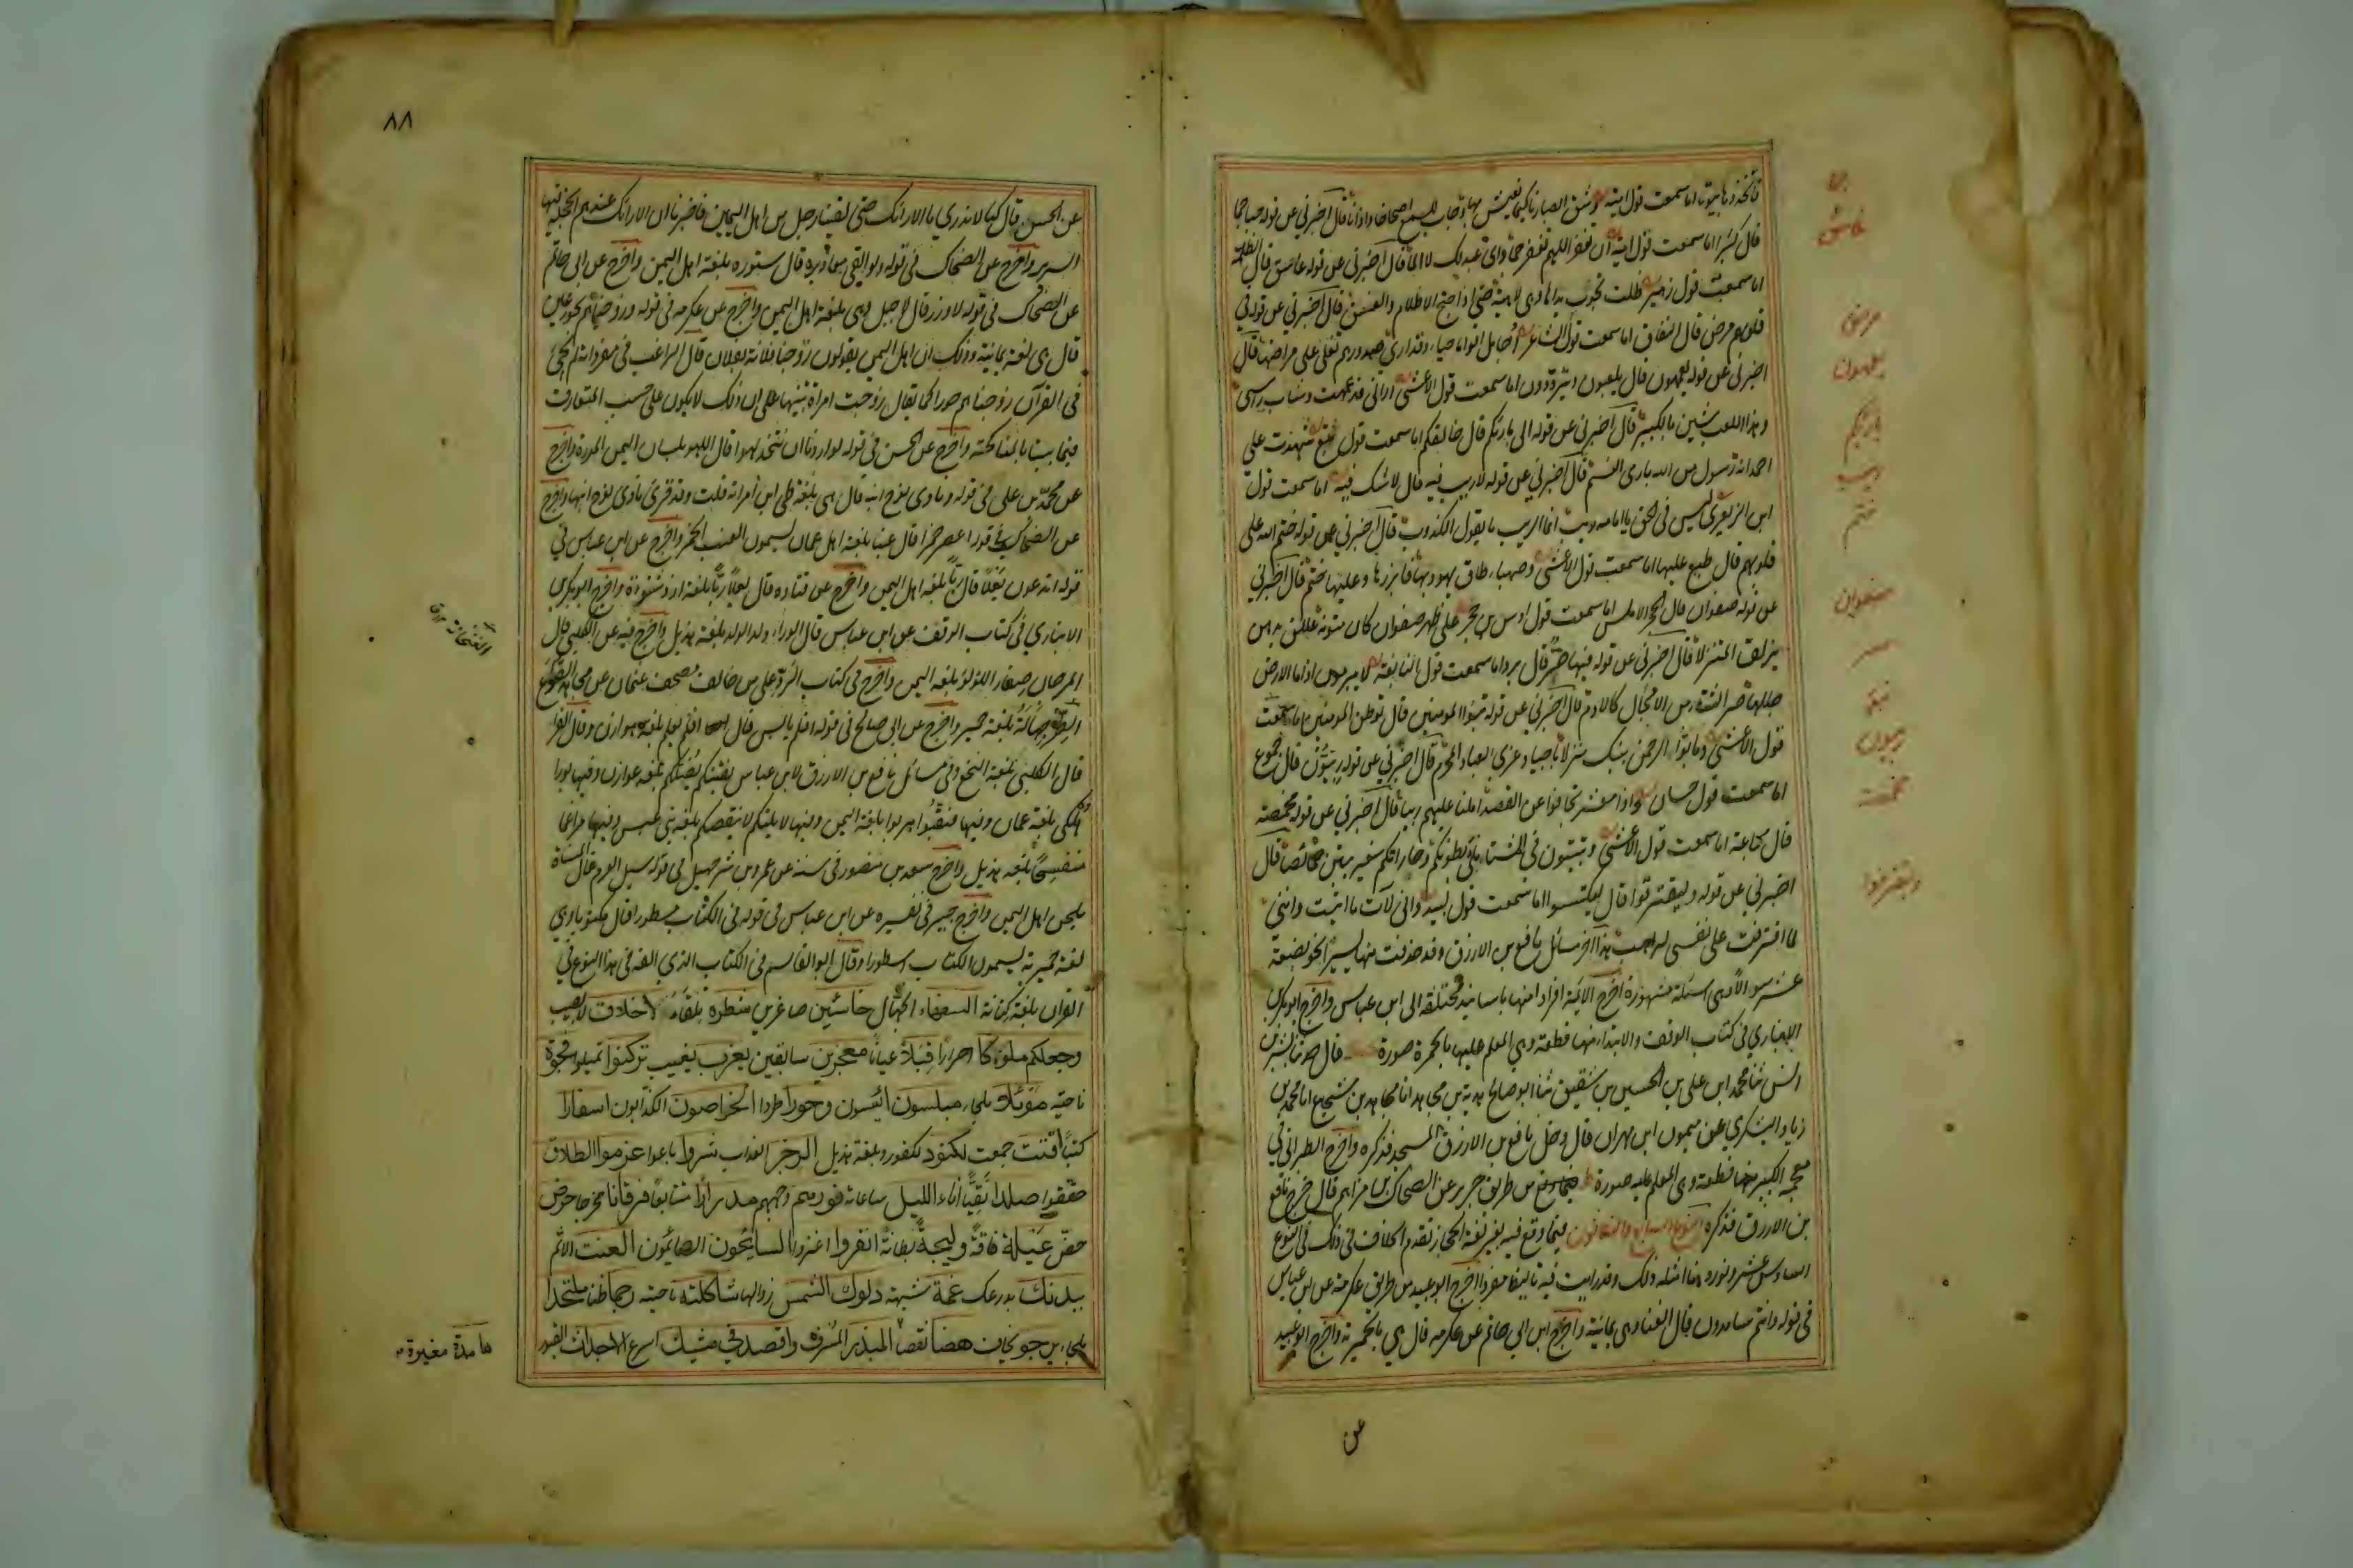 قال اخبرني عن قوله
اما سمعت قول زهير ظلت تجوب يداها وهي لاهية حتى اذا جنح الاظلام والغسق قال اخبرني عن قوله في
قلوبهم مرض قال النفاق اما سمعت قول الشاعر اجامل اقواما حياء وقد ارى صدورهم تغلي علي مراضها قال
اخبرني عن قوله يعمهون قال يلعبون ويترددون اما سمعت قول الاعشى اراني قد عمهت وشاب راسي
وهذا اللعب شين بالكبير قال اخبرني عن قوله الى بارئكم قال خالقكم اما سمعت قول تبع شهدت على
احمد انه رسول من الله بارى النسم قال اخبرني عن قوله لا ريب فيه قال لا شك فيه اما سمعت قول
ابن الزبعرى ليس في الحق يا امامة ريب انما الريب ما يقول الكذوب قال اخبرني عن قوله ختم الله على
قلوبهم قال طبع عليها اما سمعت قول الاعشى وصهباء طاف يهوديها فابرزها وعليها ختم قال اخبرني
عن قوله صفوان قال الحجر الاملس اما سمعت قول اوس بن حجر على ظهر صفوان كان متونه عللن بدهن
يزلق المتنزلا قال اخبرني عن قوله فيها صر قال برد اما سمعت قول النابغة لا يبرمون اذا ما الارض
جللها صر الشتاء من الامحال كالادم قال اخبرني عن قوله تبوئ المومنين قال توطن المومنين اما سمعت
قول الاعشى وما بوأ الرحمن بيتك منزلا باجياد غربي الصفا والمحرم قال اخبرني عن قوله ربيون قال جموع
اما سمعت قول حسان واذا معشر تجافوا عن القصد املنا عليهم ربيا قال اخبرني عن قوله مخمصة
قال مجاعة اما سمعت قول الاعشى وتبيتون في المشتاء ملاء بطونكم وجاراتكم سغب يبتن خمائصا قال
اخبرني عن قوله وليقترفوا قال ليكتسبوا اما سمعت قول لبيد واني لآت ما اتيت وانني
لما اقترفت على نفسي لراهب هذا اخر مسائل نافع بن الازرق وقد حذفت منها يسيرا نحو بضعة
عشر سوالا وهي اسئلة مشهورة اخرج الائمة افرادا منها باسانيد مختلفة الى ابن عباس واخرج ابو بكر بن
الانباري في كتاب الوقف والابتداء منها قطعة وهي المعلم عليها بالحمرة صورة قال حدثنا بشر بن
انس ثنا محمد ابن علي بن الحسين بن شقيق ثنا ابو صالح هدبة بن مجاهد انا مجاهد بن شجاع انا محمد بن
زياد اليشكري عن ميمون ابن مهران قال دخل نافع بن الازرق المسجد فذكره واخرج الطبراني في
معجمه الكبير منها قطعة وهي المعلم عليه صورة ط من طريق جويبر عن الضحاك بن مزاحم قال خرج نافع
بن الازرق فذكره النوع السابع والثلاثون فيما وقع فيه بغير لغة الحجاز تقدم الخلاف في ذلك في النوع
السادس عشر ونورد هنا امثلة ذلك وقد رايت فيه تاليفا مفردا اخرج ابو عبيد من طريق عكرمة عن ابن عباس
في قوله وانتم سامدون قال الغناء وهي يمانية واخرج ابن ابي حاتم عن عكرمة قال هي بالحميرية واخرج ابو عبيد
عن
مرض
يعمهون
بارئكم
ريب
ختم
صفوان
صر
ربيون
مخمصة
وليقترفوا
٨٨
عن الحسن قال كنا لا ندري ما الارائك حتى لقينا رجل من اهل اليمن فاخبرنا ان الاريكة عندهم الحجلة فيها
السرير واخرج عن الضحاك في قوله ولو القى معاذيره قال ستوره بلغة اهل اليمن واخرج عن ابي حاتم
عن الضحاك في قوله لا وزر قال لا جبل وهي بلغة اهل اليمن واخرج عن عكرمه في قوله وزوجناهم بحور عين
قال هي لغة يمانية وذلك ان اهل اليمن يقولون زوجنا فلانا بفلانة قال الراغب في مفرداته لم يجئ
في القرآن زوجناهم حورا كما يقال زوجت امراة تنبيها على ان ذلك لا يكون على حسب المتعارف
فيما بيننا بالمناكحة واخرج عن الحسن في قوله لو اردنا ان نتخذ لهوا قال اللهو بلسان اليمن المراة واخرج
عن محمد بن علي في قوله ونادى نوح ابنه قال هي بلغة طي ابن امراته قلت وقد قرئ ونادى نوح ابنها واخرج
عن الضحاك في قوله اعصر خمرا قال عنبا بلغة اهل عمان يسمون العنب الخمر واخرج عن ابن عباس في
قوله اتدعون بعلا قال ربا بلغة اهل اليمن واخرج عن قتاده قال بعلا ربا بلغة ازد شنوءة واخرج ابو بكر بن
الانباري في كتاب الوقف عن ابن عباس قال الوراء ولد الولد بلغة هذيل واخرج فيه عن الكلبي قال
المرجان صغار اللؤلؤ بلغة اليمن واخرج في كتاب الرد على من خالف مصحف عثمان عن مجاهد
بلغة حمير واخرج عن ابي صالح في قوله افلم ييأس قال افلم يعلم بلغة هوازن وقال الفراء
قال الكلبي بلغة النخع وفي مسائل نافع بن الازرق لابن عباس يفتنكم يضلكم بلغة هوازن وفيها بورا
هلكى بلغة عمان وفيها فنقبوا هربوا بلغة اليمن وفيها لا يلتكم لا ينقصكم بلغة بني عبس وفيها مراغما
منفسحا بلغة هذيل واخرج سعد بن منصور في سننه عن عمرو بن شرحبيل في قوله سيل العرم قال المسناة
بلحن اهل اليمن واخرج جبير في تفسيره عن ابن عباس في قوله في الكتاب مسطورا قال مكتوبا وهي
لغة حميرية يسمون الكتاب اسطورا وقال ابو القاسم في الكتاب الذي الفه في هذا النوع في
القران بلغة كنانة السفهاء الجهال خاسئين صاغرين شطره تلقاء لا خلاق لا نصيب
وجعلكم ملوكا احرارا قبلا عيانا معجزين سابقين يعزب يغيب تركنوا تميلوا فجوة
ناحية موئلا ملجاء مبلسون ائسون دحورا طردا الخراصون الكذابون اسفارا
كتبا اقتت جمعت لكنود لكفور وبلغة هذيل الرجز العذاب شروا باعوا عزموا الطلاق
حققوا صلدا نقيا اناء الليل ساعاته فورهم وجههم مدرارا متتابعا فرقانا مخرجا حرض
حض عيلة فاقة وليجة بطانة انفروا اغزوا السائحون الصائمون العنت الاثم
ببدنك بدرعك غمة شبهة دلوك الشمس زوالها شاكلته ناحيته رجما ظنا ملتحدا
ملجاء يرجو يخاف هضما نقصا المبذر المسرف واقصد في مشيك اسرع الاجداث القبور
هامدة مغبرة